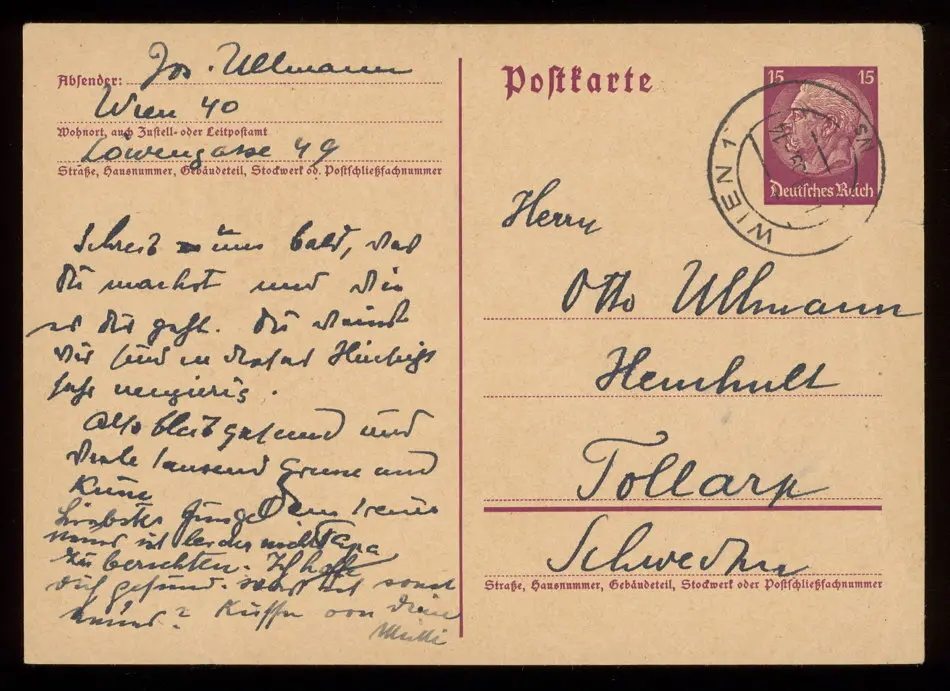 Postkarte
Absender: Jos. Ullmann
Wien 40
Wohnort, auch Zustell- oder Leitpostamt
Löwengasse 49
Straße, Hausnummer, Gebäudeteil, Stockwerk od. Postschließfachnummer
15 15
Deutsches Reich
WIEN 1
Schreib uns bald, was
Du machst und wie
es dir geht. Du
wir sind in dieser Hinsicht
sehr neugierig.
Also bleib gesund und
viele tausend Grüsse und
Küsse
Dein treuer
Papa
Liebster Junge
ist leider nicht
zu berichten. Ich hoffe
gesund. sonst
Küsse von Deine
Mutti
Herrn
Otto Ullmann
Hemhult
Tollarp
Schweden
Straße, Hausnummer, Gebäudeteil, Stockwerk oder Postschließfachnummer